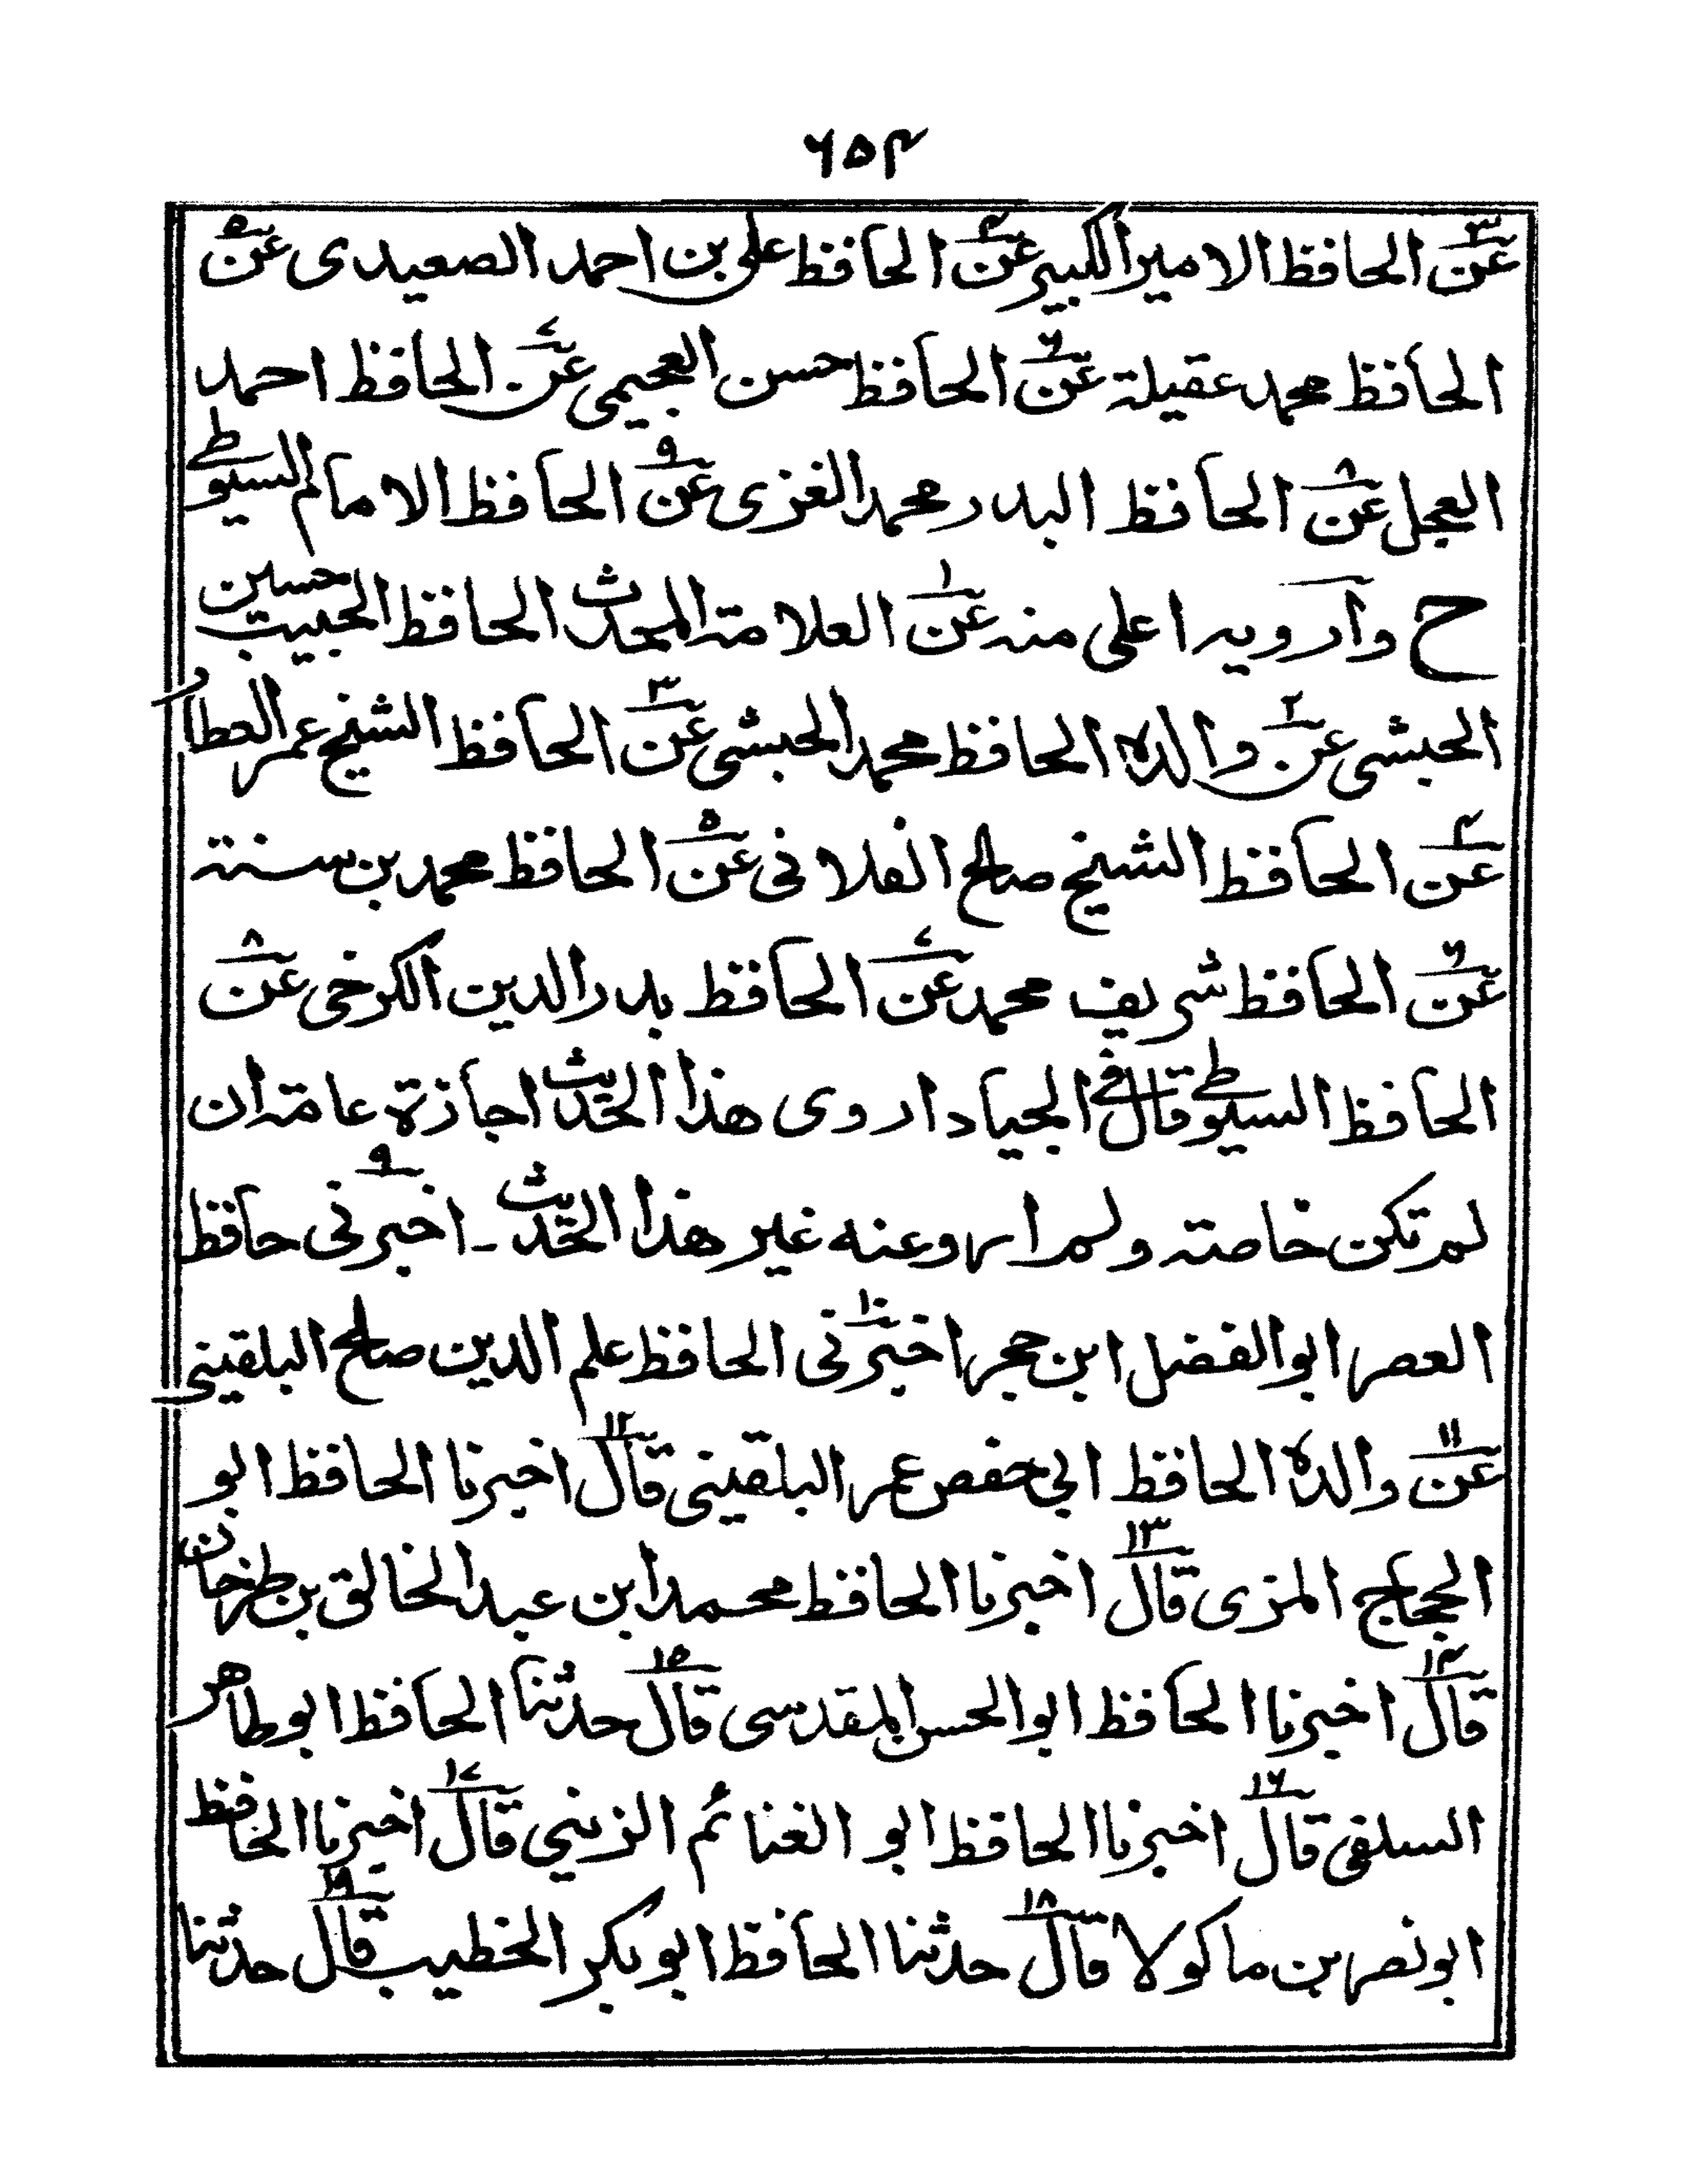 ٦٥٤
عن٣ الحافظ الامير الكبير عن٤ الحافظ علی بن احمد الصعيدی عن٥
الحافظ محمد عقيلة عن٦ الحافظ حسن العجيمی عن٧ الحافظ احمد
العجل عن٨ الحافظ البدر محمد الغزی عن٩ الحافظ الامام السيوطے
ح وارويه اعلی منه عن١ العلامة المحدث الحافظ الحبيب حسين
الحبشی عن٢ والده الحافظ محمد الحبشی عن٣ الحافظ الشيخ عمر العطار
عن٤ الحافظ الشيخ صالح الفلانی عن٥ الحافظ محمد بن سنة
عن٦ الحافظ شريف محمد عن٧ الحافظ بدر الدين الكرخی عن٨
الحافظ السيوطے قال فے الجياد اروی هذا الحديث اجازة عامة ان
لم تكن خاصة ولم ارو عنه غير هذا الحديث ـ اخبرنی٩ حافظ
العصر ابو الفضل ابن حجر اخبرنی١٠ الحافظ علم الدين صالح البلقينی
عن١١ والده الحافظ ابی حفص عمر البلقينی قال١٢ اخبرنا الحافظ ابو
الحجاج المزی قال١٣ اخبرنا الحافظ محمد ابن عبد الخالق بن طرخان
قال١٤ اخبرنا الحافظ ابو الحسن المقدسی قال١٥ حدثنا الحافظ ابو طاهر
السلفی قال١٦ اخبرنا الحافظ ابو الغنائم الزينبی قال١٧ اخبرنا الحافظ
ابو نصر بن ماكولا قال١٨ حدثنا الحافظ ابو بكر الخطيب قال١٩ حدثنا